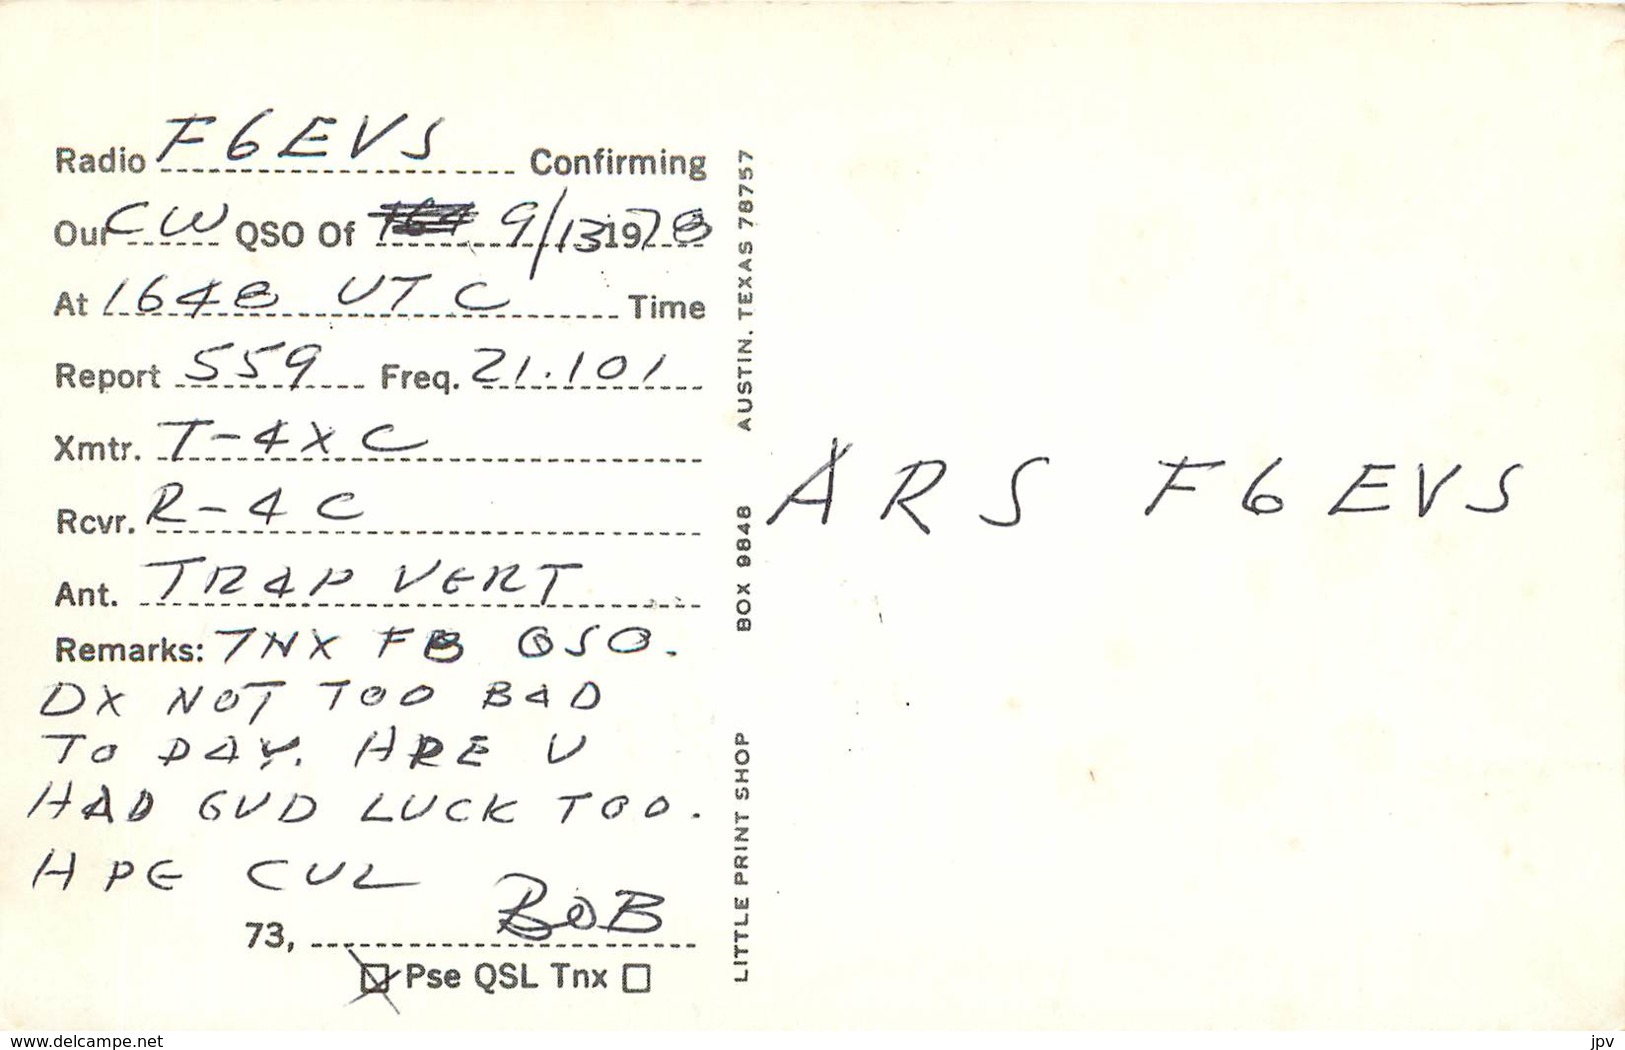 Radio F6EVS Confirming
Our CW QSO Of 9/13 1978
At 1648 UTC Time
Report 559 Freq. 21.101
Xmtr. T-4XC
Rcvr. R-4C
Ant. TRAP VERT
Remarks: TNX FB QSO.
DX NOT TOO BAD
TO DAY. HPE U
HAD GUD LUCK TOO.
HPE CUL
73, BOB
Pse QSL Tnx
LITTLE PRINT SHOP BOX 9848 AUSTIN, TEXAS 78757
ARS F6EVS
www.delcampe.net
jpv